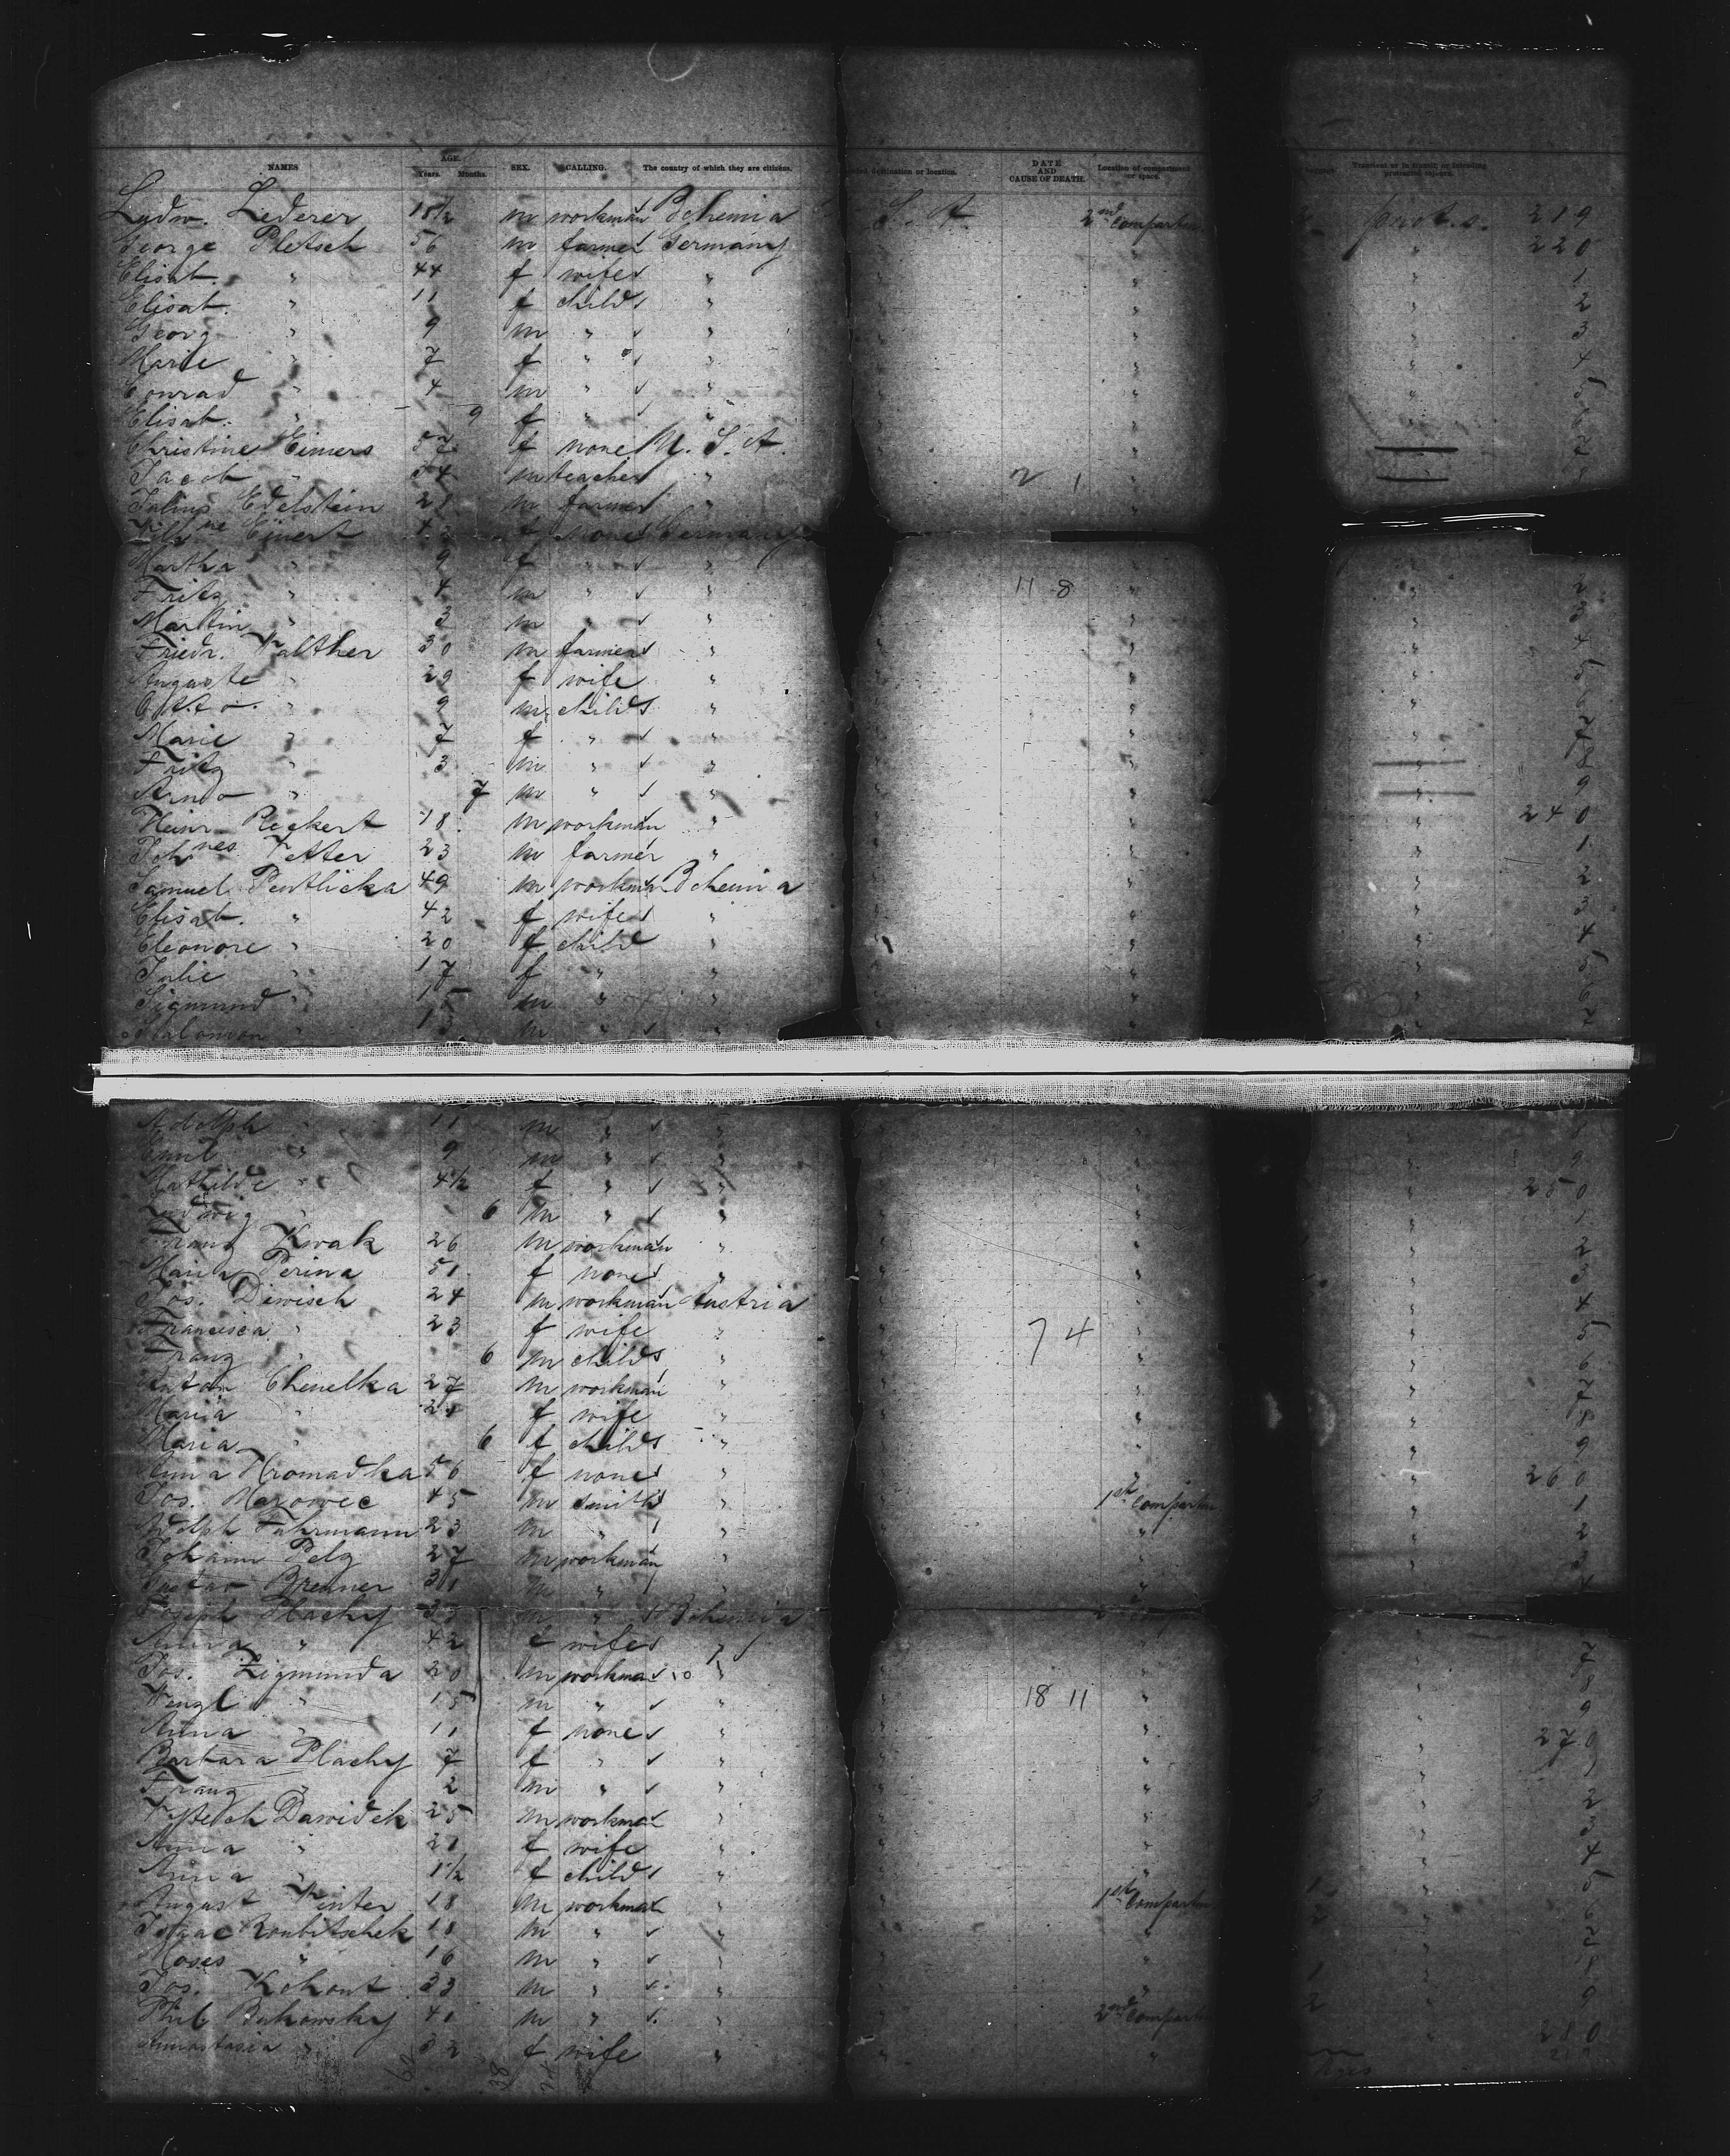 NAMES AGE. Years. Months. SEX. CALLING. The country of which they are citizens. destination or location. DATE AND CAUSE OF DEATH. Location of compartment or space. Transient or in transit, or intending protracted sojourn.
Ludw. Lederer 18½ m workman Bohemia U.S.A. 2nd Compartm prot. s. 219
George Pletsch 56 m farmer Germany " " 220
Elisab. " 44 f wife " " " " 1
Elisab. " 11 f child " " " " 2
Georg " 9 m " " " " " 3
Marie " 7 f " " " " " 4
Conrad " 4 m " " " " " 5
Elisab. " 9 f " " " " "
Christine Eimers 57 f none U.S.A. " "
Jacob " 54 m teacher " " 2 1 "
Julius Edelstein 21 m farmer " " "
Einert f none Germany
Martha " 9 f " " " "
Fritz " 4 m " " " 11 8 " " 2
Martin " 3 m " " " " " 3
Friedr. Walther 30 m farmer " " " " 4
Auguste " 29 f wife " " " " 5
Otto " 9 m child " " " " 6
Marie " 7 f " " " " " 7
Fritz " 3 m " " " " " 8
Arno " 7 m " " " " " 9
Heinr. Reckert 18 m workman " " " " 240
Johnes Vetter 23 m farmer " " " " 1
Samuel Pentlicka 49 m workman Bohemia " " " 2
Elisab. " 42 f wife " " " " 3
Eleonore " 20 f child " " " " 4
Julie " 17 f " " " " " 5
Sigmund " 15 m " " " " " 6
Salomon " 13 m " " " " " 7
Adolph " 11 m " " " " " 8
Emil " 9 m " " " " " 9
Mathilde " 4½ f " " " " " 250
Ludwig " 6 m " " " " " 1
Franz Kwak 26 m workman " " " " 2
Maria Perina 51 f none " " " " 3
Jos. Diwisch 24 m workman Austria " " " 4
Francisca " 23 f wife " " 7 4 " " 5
Franz " 6 m child " " " " 6
Anton Chmelka 27 m workman " " " " 7
Maria " 21 f wife " " " " 8
Maria " 6 f child " " " " 9
Anna Hromadka 56 f none " " " " 260
Jos. Marowec 45 m smith " " 1st Compartm " 1
Adolph Fuhrmann 23 m " " " " " 2
Johann Pelz 27 m workman " " " " 3
Gustav Brenner 31 m " " " "
Joseph Plachy m " Bohemia
Anna " 42 f wife " " "
Jos. Zigmunda 20 m workman " " " " 7
Wenzl " 15 m " " " 18 11 " " 8
Anna " 11 f none " " " " 9
Barbara Plachy 7 f " " " " " 270
Franz " 2 m " " " " " 1
Dawidek 25 m workman " " " " 2
Anna " 21 f wife " " " " 3
Anna " 1½ f child " " " " 4
August Winter 18 m workman " " 1st Compartm " 5
Isaac Roubitschek 18 m " " " " " 6
Moses " 16 m " " " " "
Jos. Kohout 33 m " " " " "
Phil. Bukowsky 41 m " " " 2nd Compartm " 9
Annastasia " 32 f wife " " " 280